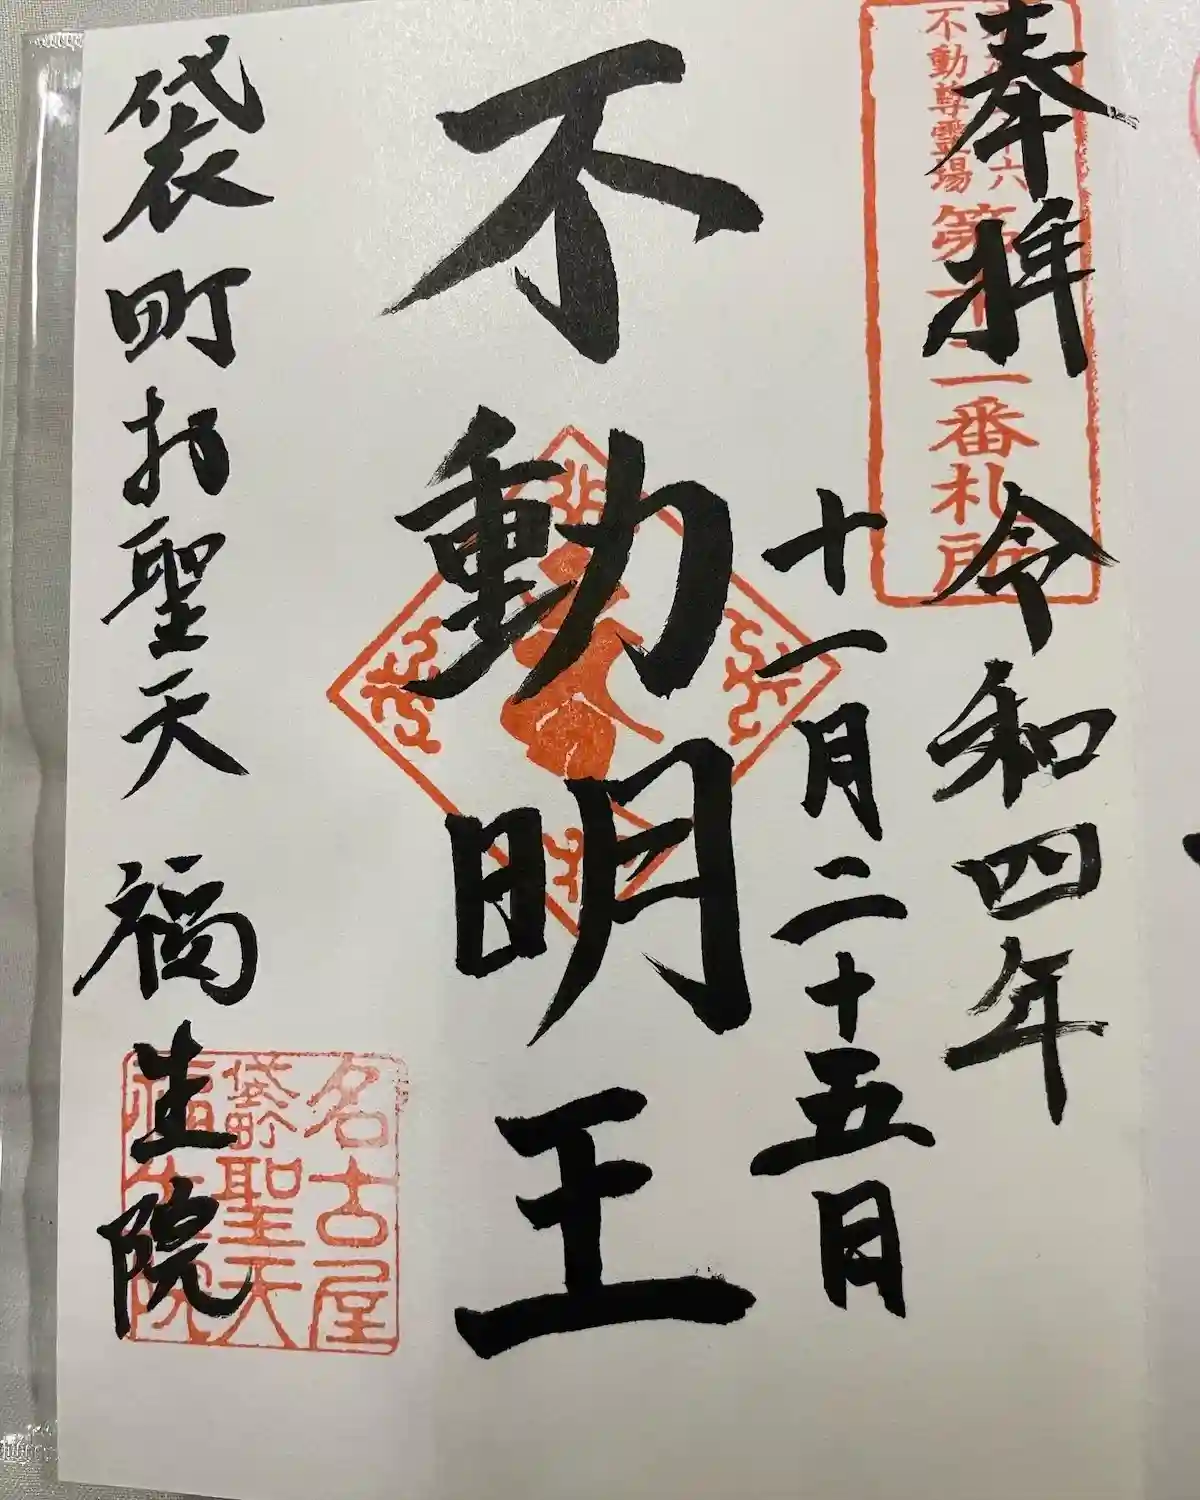 奉拝 令和四年
十一月二十五日
不動明王
袋町お聖天 福生院
不動尊霊場
六
第十二番札所
名古屋
袋町聖天
福生院